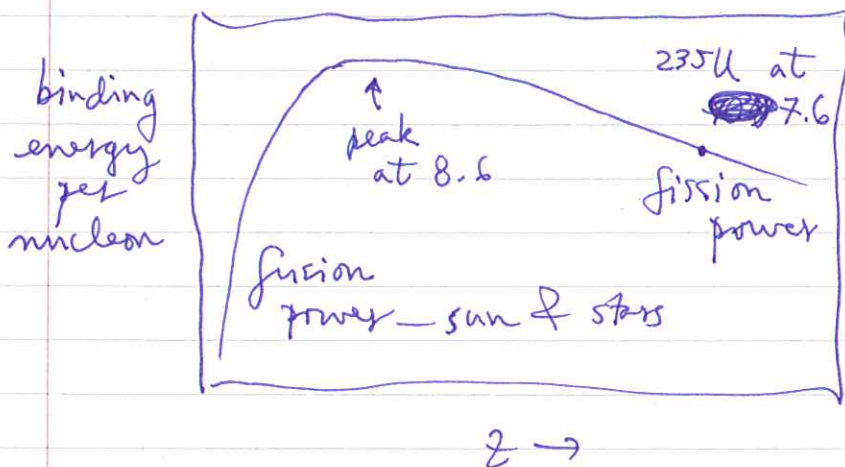 binding
energy
per
nucleon
235U at
7.6
↑
peak
at 8.6
fission
power
fusion
power – sun & stars
Z →